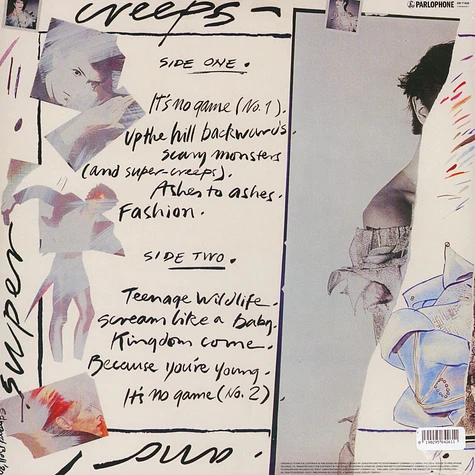 creeps
PARLOPHONE
SIDE ONE.
It's no game (No. 1).
Up the hill backwards.
scary monsters
(and super-creeps).
Ashes to ashes.
Fashion.
SIDE TWO.
Teenage wildlife.
scream like a baby.
Kingdom come.
Because you're young.
It's no game (No. 2)
super
and